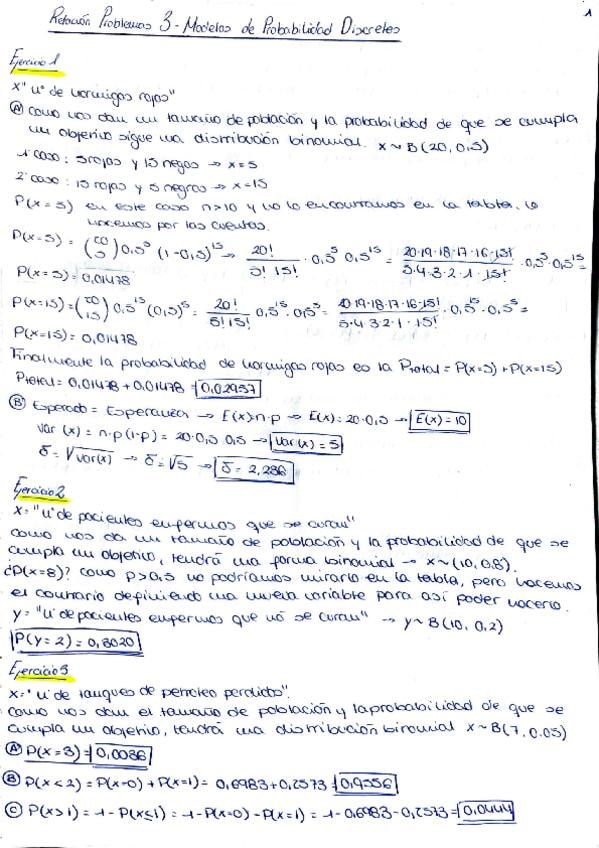 1
Relación Problemas 3 - Modelos de Probabilidad Discretos
Ejercicio 1
X "nº de hormigas rojas"
Ⓐ Como nos dan un tamaño de población y la probabilidad de que se cumpla
un objetivo sigue una distribución binomial. X ~ B(20, 0,5)
1º caso: 5 rojas y 15 negras → x=5
2º caso: 15 rojas y 5 negras → x=15
P(x=5) en este caso n>10 y no lo encontramos en la tabla, lo
hacemos por las cuentas.
P(x=5) = (20 5) 0,5⁵ (1-0,5)¹⁵ → 20!/5! 15! · 0,5⁵ 0,5¹⁵ = 20·19·18·17·16·15!/5·4·3·2·1·15! · 0,5⁵·0,5¹⁵ =
P(x=5) = 0,01478
P(x=15) = (20 15) 0,5¹⁵ (0,5)⁵ = 20!/5! 15! 0,5¹⁵ · 0,5⁵ = 20·19·18·17·16·15!/5·4·3·2·1·15! · 0,5¹⁵ · 0,5⁵ =
P(x=15) = 0,01478
Finalmente la probabilidad de hormigas rojas es la Ptotal = P(x=5) + P(x=15)
Ptotal = 0,01478 + 0,01478 = 0,02957
Ⓑ Esperado = Esperanza → E(x)=n·p → E(x)=20·0,5 → E(x)=10
Var(x) = n·p(1-p) = 20·0,5·0,5 → Var(x) = 5
δ = √Var(x) → δ = √5 → δ = 2,236
Ejercicio 2
X = "nº de pacientes enfermos que se curan"
Como nos da un tamaño de población y la probabilidad de que se
cumpla un objetivo, tendrá una forma binomial → X ~ (10, 0,8).
¿P(x=8)? Como p>0,5 no podríamos mirarlo en la tabla, pero hacemos
el contrario definiendo una nueva variable para así poder hacerlo.
Y = "nº de pacientes enfermos que no se curan" → Y ~ B(10, 0,2)
P(Y=2) = 0,3020
Ejercicio 3
X = "nº de tanques de petroleo perdidos".
Como nos dan el tamaño de población y la probabilidad de que se
cumpla un objetivo, tendrá una distribución binomial X ~ B(7, 0.05)
Ⓐ P(x=3) = 0,0036
Ⓑ P(x<2) = P(x=0) + P(x=1) = 0,6983 + 0,2573 = 0,9556
Ⓒ P(x>1) = 1 - P(x≤1) = 1 - P(x=0) - P(x=1) = 1 - 0,6983 - 0,2573 = 0,0444